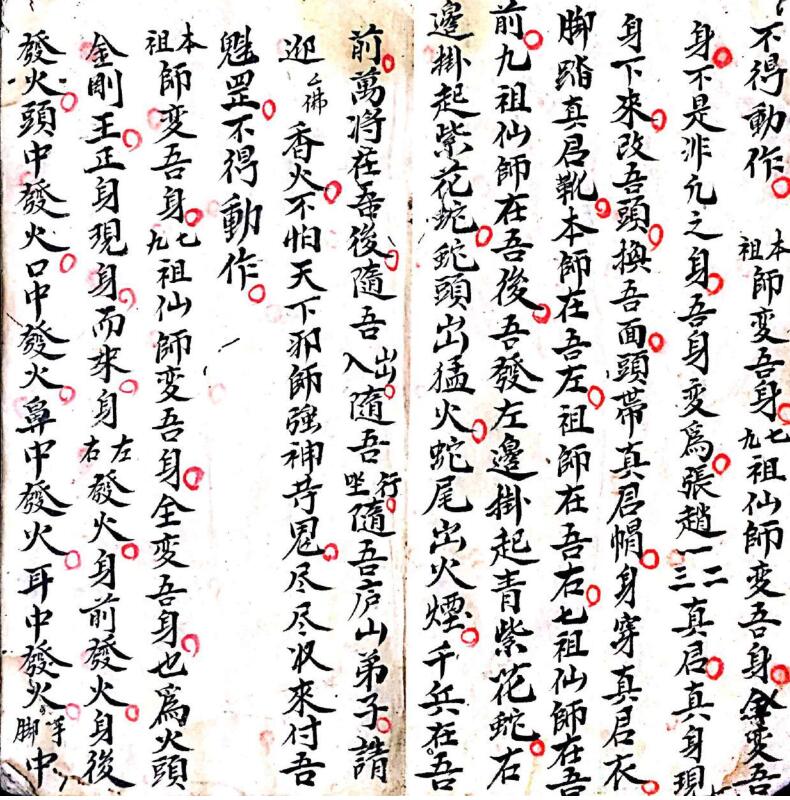 不得動作。本祖師變吾身。七九祖仙師变吾身全变吾
身不是非凢之身。吾身变爲張趙一二三真君。真身現
身下來。改吾頭。換吾面。頭帯真君帽。身穿真君衣。
脚踏真君靴。本師在吾左。祖師在吾右。七祖仙師在吾
前九祖仙師在吾後。吾發左邊掛起青紫花蛇。右
邊掛起紫花蛇。蛇頭出猛火。蛇尾出火煙。千兵在吾
前。萬将在吾後。隨吾出入。隨吾行坐。隨吾庐山弟子。請
迎厶佛香火。不怕天下邪師強神寺鬼。尽尽収來付吾
魁罡。不得動作。
本祖師変吾身。七九祖仙師变吾身。全变吾身。也爲火頭
金剛王。正身現身。而來。身左右發火。身前發火。身後
發火。頭中發火。口中發火。鼻中發火。耳中發火。手脚中